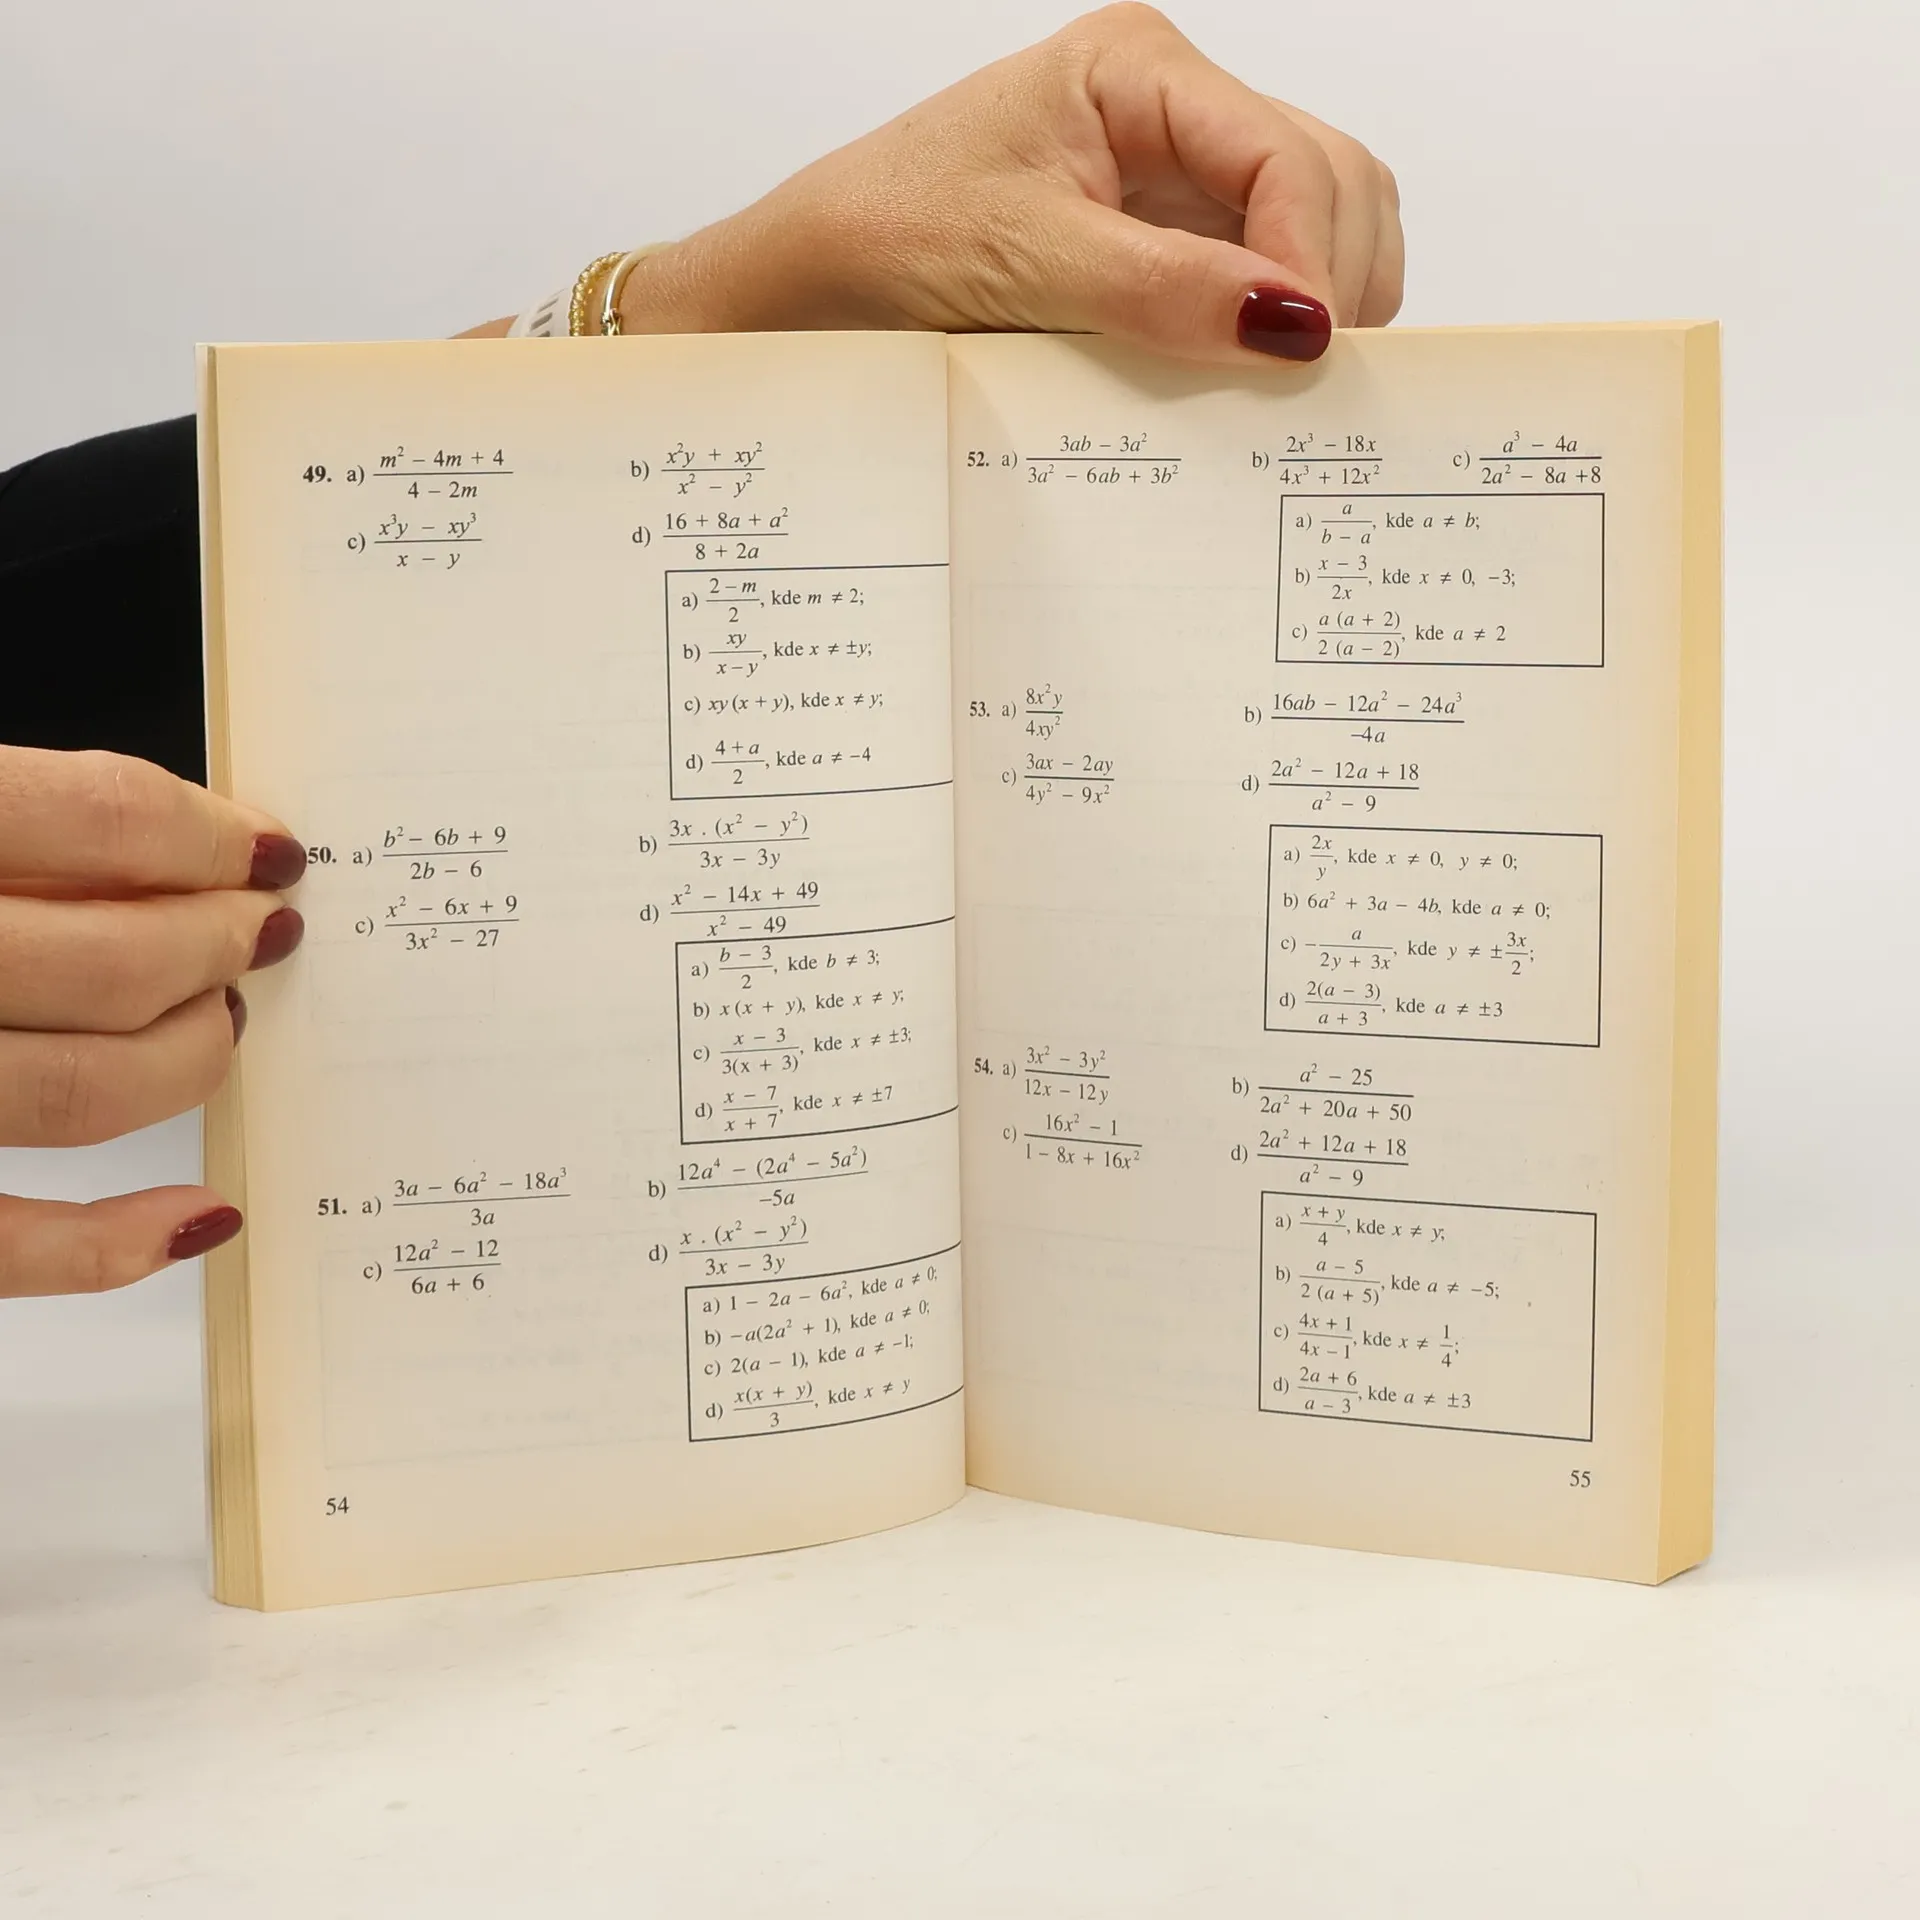 49. a) (m² – 4m + 4)/(4 – 2m) b) (x²y + xy²)/(x² – y²)
c) (x³y – xy³)/(x – y) d) (16 + 8a + a²)/(8 + 2a)
a) (2 – m)/2, kde m ≠ 2;
b) xy/(x – y), kde x ≠ ±y;
c) xy (x + y), kde x ≠ y;
d) (4 + a)/2, kde a ≠ –4
50. a) (b² – 6b + 9)/(2b – 6) b) (3x . (x² – y²))/(3x – 3y)
c) (x² – 6x + 9)/(3x² – 27) d) (x² – 14x + 49)/(x² – 49)
a) (b – 3)/2, kde b ≠ 3;
b) x (x + y), kde x ≠ y;
c) (x – 3)/(3(x + 3)), kde x ≠ ±3;
d) (x – 7)/(x + 7), kde x ≠ ±7
51. a) (3a – 6a² – 18a³)/(3a) b) (12a⁴ – (2a⁴ – 5a²))/(–5a)
c) (12a² – 12)/(6a + 6) d) (x . (x² – y²))/(3x – 3y)
a) 1 – 2a – 6a², kde a ≠ 0;
b) –a(2a² + 1), kde a ≠ 0;
c) 2(a – 1), kde a ≠ –1;
d) (x(x + y))/3, kde x ≠ y
54
52. a) (3ab – 3a²)/(3a² – 6ab + 3b²) b) (2x³ – 18x)/(4x³ + 12x²) c) (a³ – 4a)/(2a² – 8a +8)
a) a/(b – a), kde a ≠ b;
b) (x – 3)/(2x), kde x ≠ 0, –3;
c) (a (a + 2))/(2 (a – 2)), kde a ≠ 2
53. a) (8x²y)/(4xy²) b) (16ab – 12a² – 24a³)/(–4a)
c) (3ax – 2ay)/(4y² – 9x²) d) (2a² – 12a + 18)/(a² – 9)
a) 2x/y, kde x ≠ 0, y ≠ 0;
b) 6a² + 3a – 4b, kde a ≠ 0;
c) – a/(2y + 3x), kde y ≠ ± 3x/2;
d) (2(a – 3))/(a + 3), kde a ≠ ±3
54. a) (3x² – 3y²)/(12x – 12y) b) (a² – 25)/(2a² + 20a + 50)
c) (16x² – 1)/(1 – 8x + 16x²) d) (2a² + 12a + 18)/(a² – 9)
a) (x + y)/4, kde x ≠ y;
b) (a – 5)/(2 (a + 5)), kde a ≠ –5;
c) (4x + 1)/(4x – 1), kde x ≠ 1/4;
d) (2a + 6)/(a – 3), kde a ≠ ±3
55